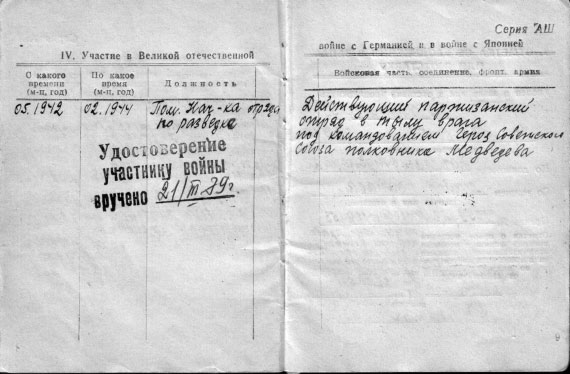 Серия АШ
IV. Участие в Великой отечественной
войне с Германией и в войне с Японией
С какого
времени
(м-ц, год)
По какое
время
(м-ц, год)
Должность
Войсковая часть, соединение, фронт, армия
05.1942
02.1944
Пом. Нач-ка отряда
по разведке
Действующий партизанский
отряд в тылу врага
под командованием Героя Советского
Союза полковника Медведева
Удостоверение
участнику войны
вручено 21/III 89г.